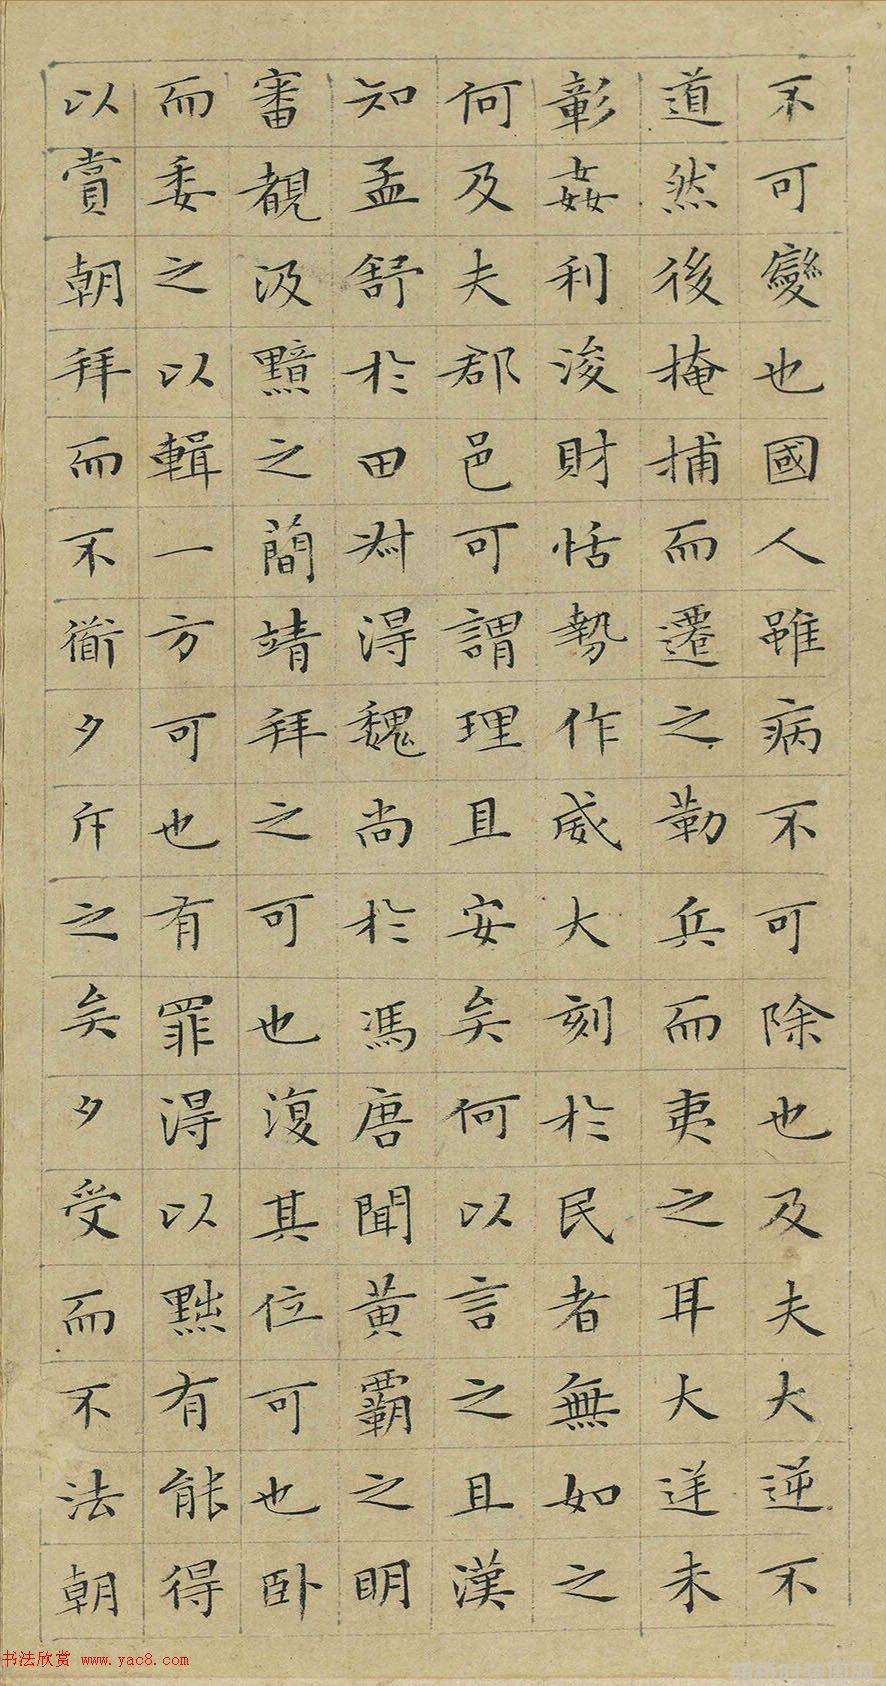 不可變也國人雖病不可除也及夫大逆不
道然後掩捕而遷之勒兵而夷之耳大逆未
彰姦利浚財恬勢作威大刻於民者無如之
何及夫郡邑可謂理且安矣何以言之且漢
知孟舒於田叔得魏尚於馮唐聞黃霸之明
審覩汲黯之簡靖拜之可也復其位可也臥
而委之以輯一方可也有罪得以黜有能得
以賞朝拜而不衜夕斥之矣夕受而不法朝
书法欣赏 www.yac8.com